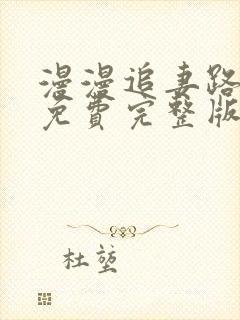 漫漫追妻路
免費完整版
杜莛